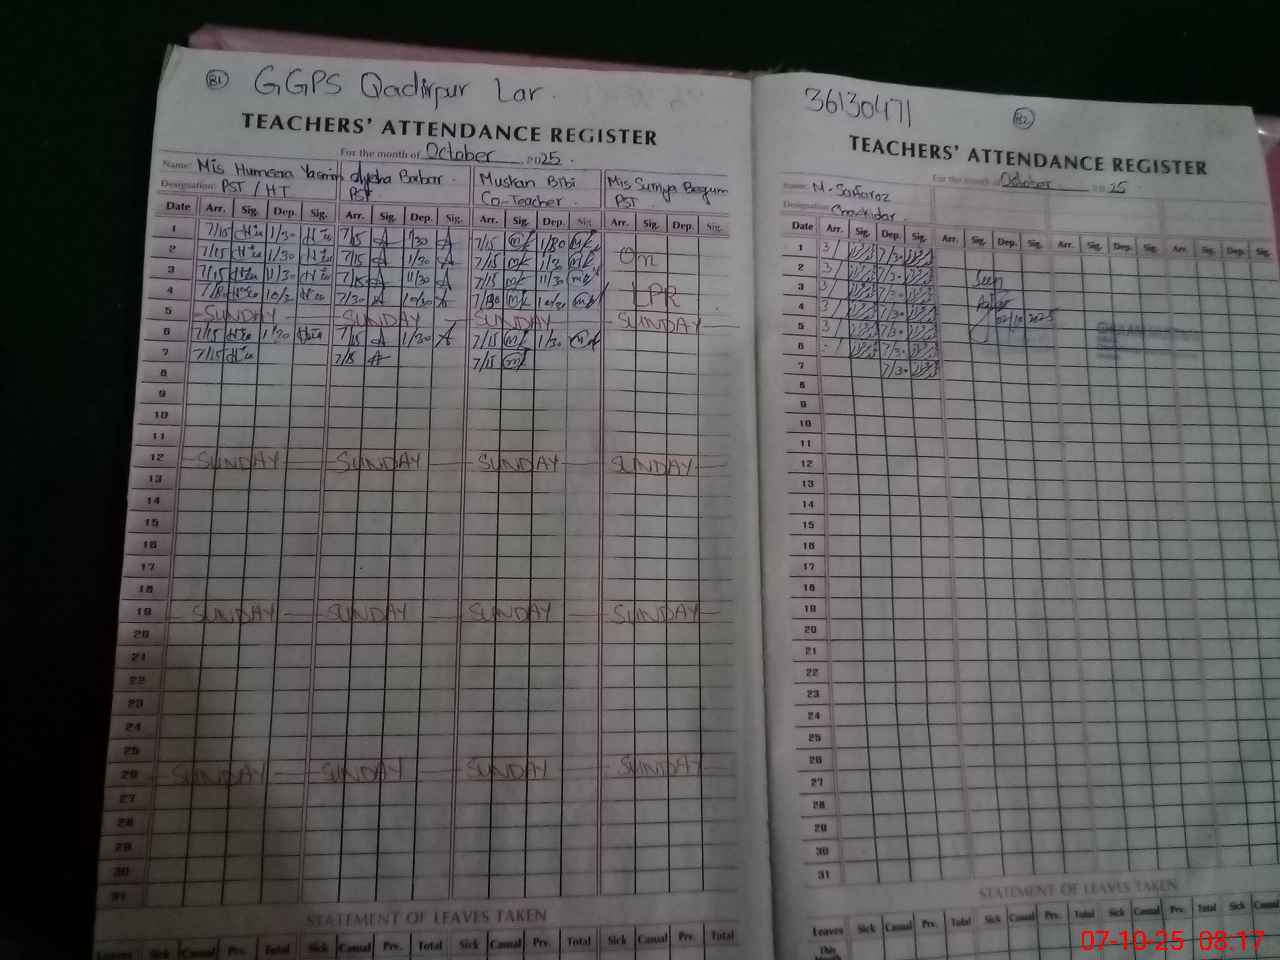 81 GGPS Qadirpur Lar.
TEACHERS' ATTENDANCE REGISTER
For the month of October 2025.
Name: Mis Humera Yasmin Ayesha Babar. Muskan Bibi Mis Suriya Begum
Designation: PST / HT PST Co-Teacher. PST.
Date Arr. Sig. Dep. Sig. Arr. Sig. Dep. Sig. Arr. Sig. Dep. Sig. Arr. Sig. Dep. Sig.
1 7/15 1/30 7/15 A 1/30 A 7/15 mk 1/30 mk
2 7/15 1/30 7/15 A 1/30 A 7/15 mk 1/30 mk On
3 7/15 11/30 7/15 A 11/30 A 7/15 mk 11/30 mk
4 7/30 10/30 7/30 A 10/30 A 7/30 mk 10/30 mk LPR
5 SUNDAY SUNDAY SUNDAY SUNDAY
6 7/15 1/30 7/15 A 1/30 A 7/15 mk 1/30 mk
7 7/15 7/15 A 7/15 mk
8
9
10
11
12 SUNDAY SUNDAY SUNDAY SUNDAY
13
14
15
16
17
18
19 SUNDAY SUNDAY SUNDAY SUNDAY
20
21
22
23
24
25
26 SUNDAY SUNDAY SUNDAY SUNDAY
27
28
29
30
31
STATEMENT OF LEAVES TAKEN
Leaves Sick Casual Prv. Total Sick Casual Prv. Total Sick Casual Prv. Total Sick Casual Prv. Total
36130471 82
TEACHERS' ATTENDANCE REGISTER
For the month of October 2025.
Name: M. Sarfaraz
Designation: Chowkidar.
Date Arr. Sig. Dep. Sig. Arr. Sig. Dep. Sig. Arr. Sig. Dep. Sig. Arr. Sig. Dep. Sig.
1 3/ 7/30
2 3/ 7/30 Seen
3 3/ 7/30
4 3/ 7/30 02/10/2025
5 3/ 7/30
6 7/30
7 7/30
8
9
10
11
12
13
14
15
16
17
18
19
20
21
22
23
24
25
26
27
28
29
30
31
STATEMENT OF LEAVES TAKEN
Leaves Sick Casual Prv. Total Sick Casual Prv. Total Sick Casual Prv. Total Sick Casual
This
07-10-25 08:17